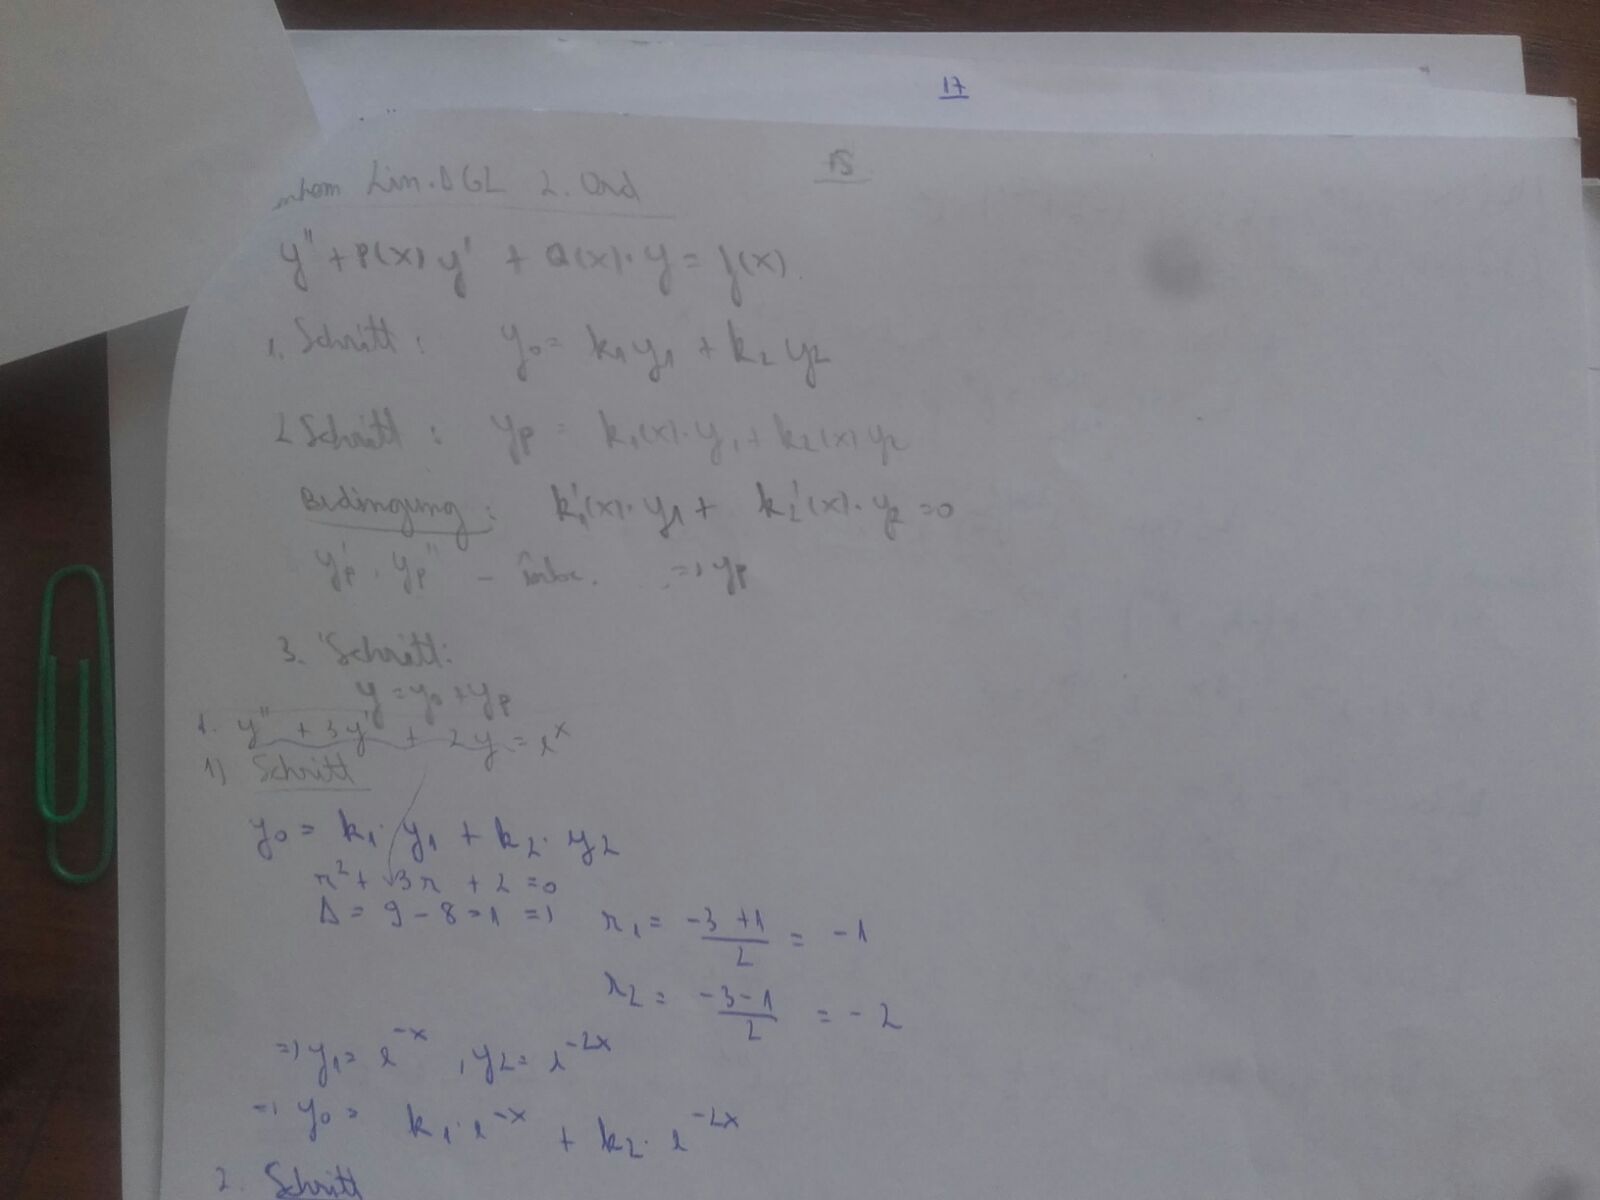 17
15
inhom Lin. DGL 2. Ord
y'' + P(x) y' + Q(x) · y = f(x)
1. Schritt : y₀ = k₁ y₁ + k₂ y₂
2 Schritt : yp = k₁(x) · y₁ + k₂(x) y₂
Bedingung : k₁'(x) · y₁ + k₂'(x) · y₂ = 0
yp', yp'' - => yp
3. Schritt:
y = y₀ + yp
1. y'' + 3y' + 2y = e^x
1) Schritt
y₀ = k₁ · y₁ + k₂ · y₂
r² + 3r + 2 = 0
Δ = 9 - 8 = 1 => r₁ = (-3 + 1)/2 = -1
r₂ = (-3 - 1)/2 = -2
=> y₁ = e^-x , y₂ = e^-2x
=> y₀ = k₁ · e^-x + k₂ · e^-2x
2. Schritt